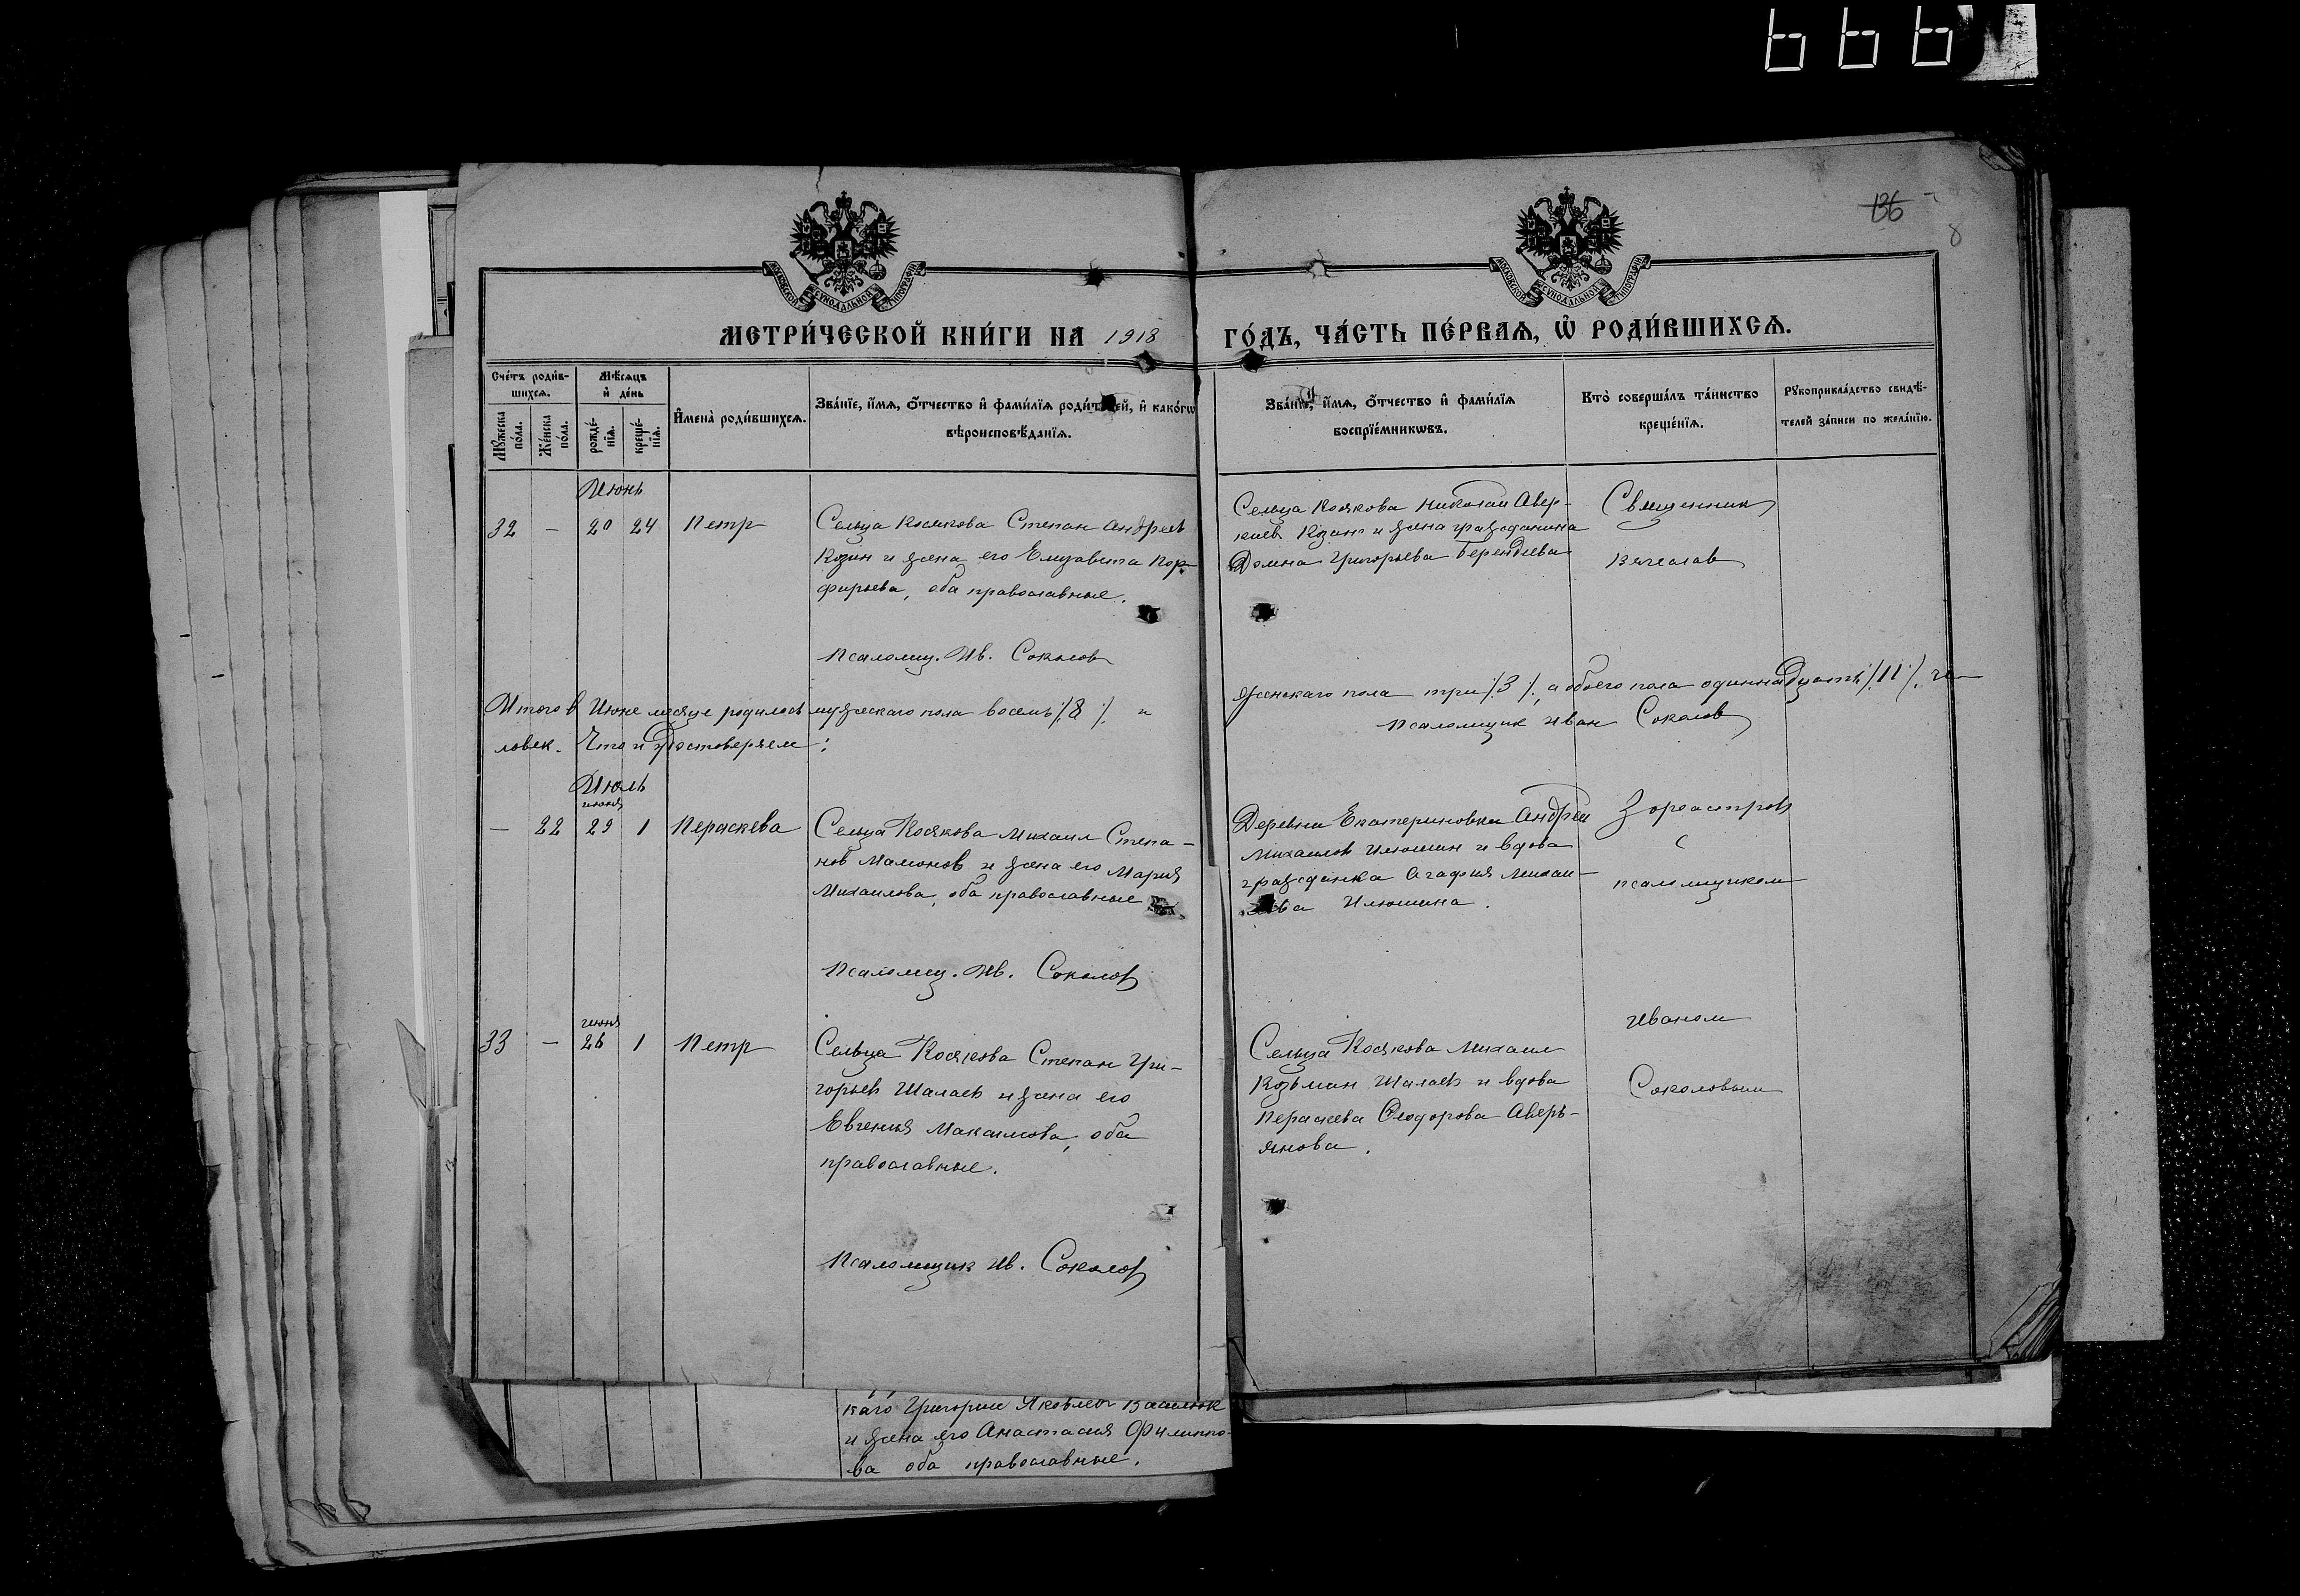 666
136
8
МОСКОВСКОЙ СѴНОДАЛЬНОЙ ТИПОГРАФІИ
МОСКОВСКОЙ СѴНОДАЛЬНОЙ ТИПОГРАФІИ
МЕТРИ́ЧЕСКОЙ КНИ́ГИ НА 1918 ГО́ДЪ, ЧА́СТЬ ПЕ́РВАЯ, Ѡ РОДИ́ВШИХСЯ.
Сче́тъ роди́в-
шихся.
Мꙋ́жеска по́ла.
Же́нска по́ла.
Мѣ́сяцъ
и҆ де́нь
рожде́-
нїя.
креще́-
нїя.
И҆мена̀ роди́вшихся.
Зва́нїе, и҆́мя, ѻ҆́тчество и҆ фами́лїя роди́телей, и҆ како́гѡ
вѣроисповѣ́данїя.
Зва́нїе, и҆́мя, ѻ҆́тчество и҆ фами́лїя
воспрїе́мникѡвъ.
Кто̀ соверша́лъ та́инство
креще́нїя.
Рꙋкоприкла́дство свидѣ́-
телей за́писи по жела́нїю.
Июнь
32 — 20 24 Петр
Сельца Косякова Степан Андреев
Козин и жена его Елизавета Пор-
фирьева, оба православные.
Псаломщ. Ив. Соколов
Сельца Косякова Николай Авер-
киев Козин и жена гражданина
Домна Григорьева Берендеева
Священник
Вячеслав
Итого в Июне месяце родилось мужескаго пола восемь /8/, и
женскаго пола три /3/, а обоего пола одиннадцать /11/, че-
ловек. Что и удостоверяем:
Псаломщик Иван Соколов
Июль
июня
— 22 29 1 Пераскева
Сельца Косякова Михаил Степа-
нов Мамонов и жена его Мария
Михаилова, оба православные
Псаломщ. Ив. Соколов
Деревни Екатериновки Андрей
Михаилов Илюшин и вдова
гражданка Агафия Михаи-
лова Илюшина.
Зороастров
с
псаломщиком
июня
33 — 26 1 Петр
Сельца Косякова Степан Гри-
горьев Шалаев и жена его
Евгения Максимова, оба
православные.
Псаломщик Ив. Соколов
Сельца Косякова Михаил
Козьмин Шалаев и вдова
Пераскева Феодорова Аверь-
янова.
Иваном
Соколовым
каго Григорий Яковлев
и жена его Анастасия Филиппо-
ва оба православные.